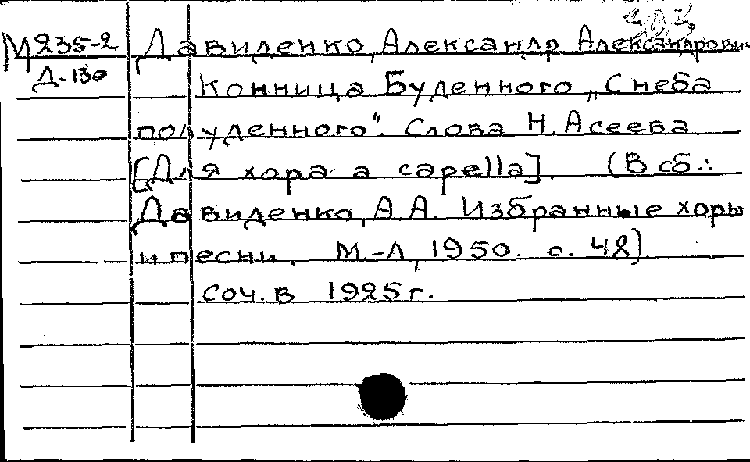 М235-2 Давиденко, Александр Александрович
Д-130 Конница Буденного „С неба
полуденного". Слова Н. Асеева
[Для хора a capella]. (В сб.:
Давиденко, А.А. Избранные хоры
и песни. М.-Л, 1950. с. 48)
Соч. в 1925 г.